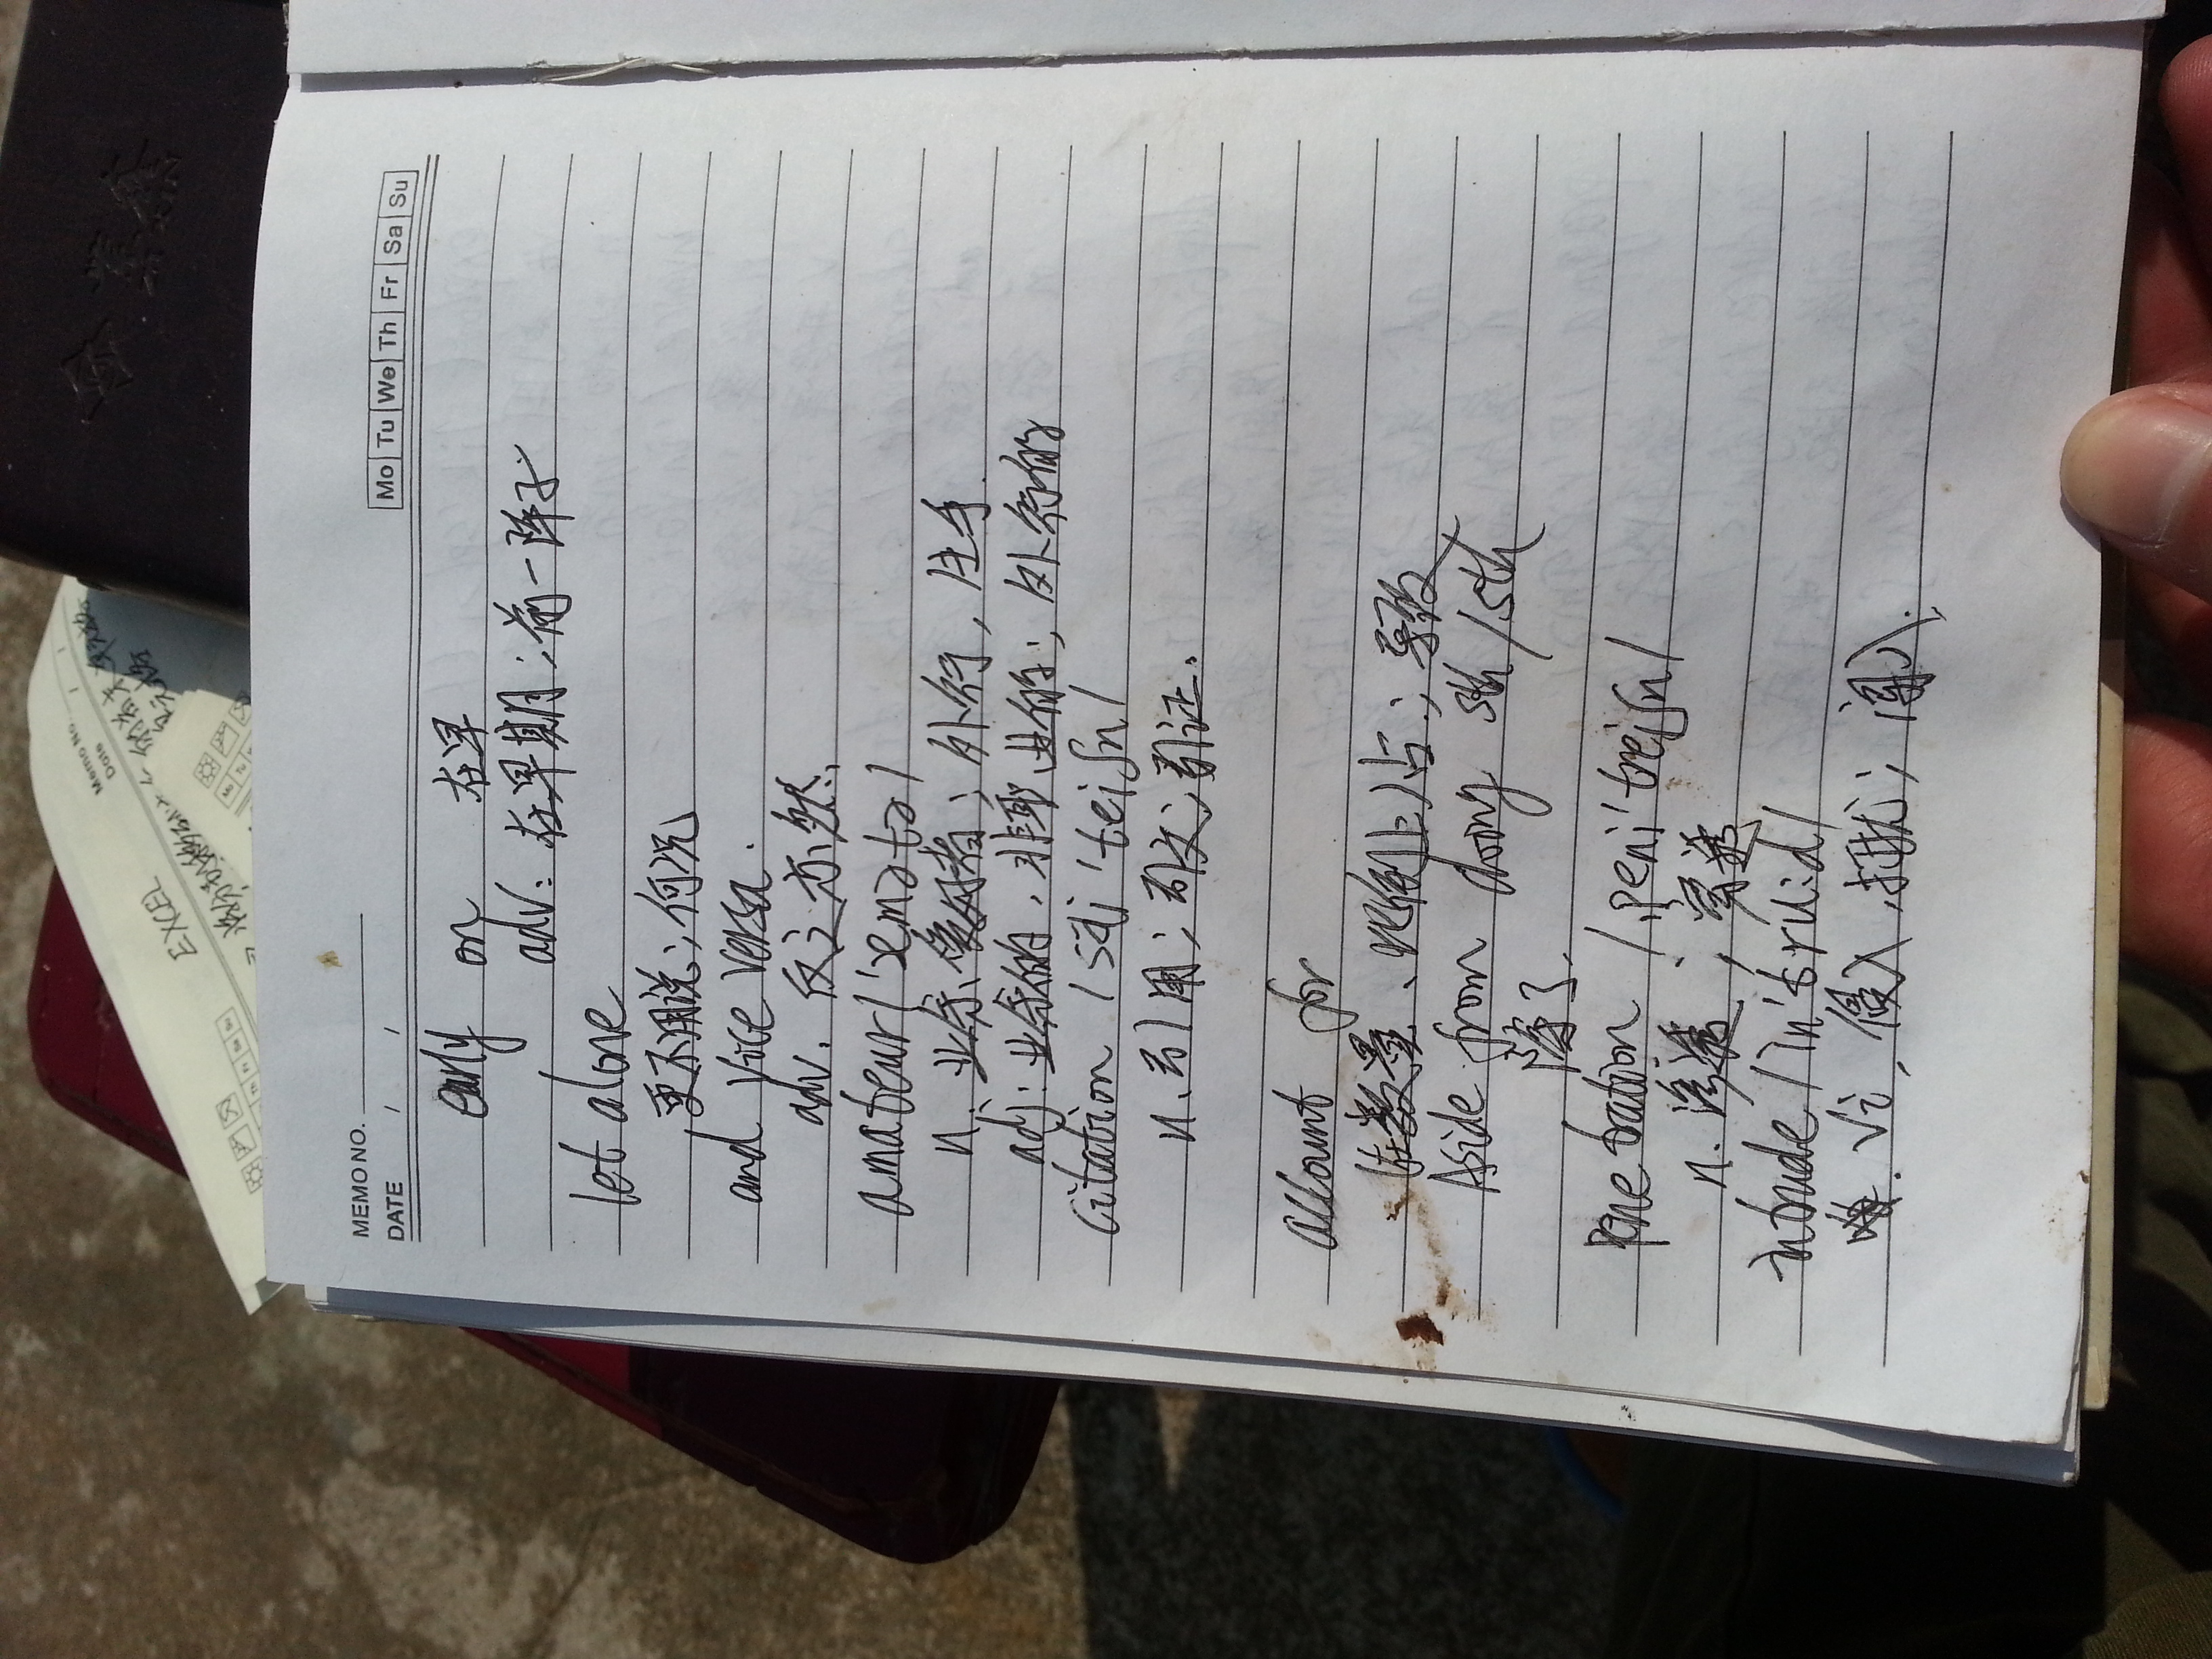 EXCEL
Memo No.
Date / /
Fr Sa Su
Mo Tu
单元格
MEMO NO.
DATE / /
Mo Tu We Th Fr Sa Su
early on 在早
adv: 在早期；前一阵子
let alone
更不用说；何况
and vice versa.
adv. 反之亦然
amateur /'æmətə/
n. 业余爱好者；外行，生手.
adj: 业余的，非职业的；外行的
citation /sai'teiʃn/
n. 引用；引文；引证。
account for
(在数量、比例上)占；导致
Aside from doing sth/sth
除了.
penetration /,peni'treiʃn/
n. 渗透；穿透
intrude /in'tru:d/
vi, 侵入，打扰；闯入.